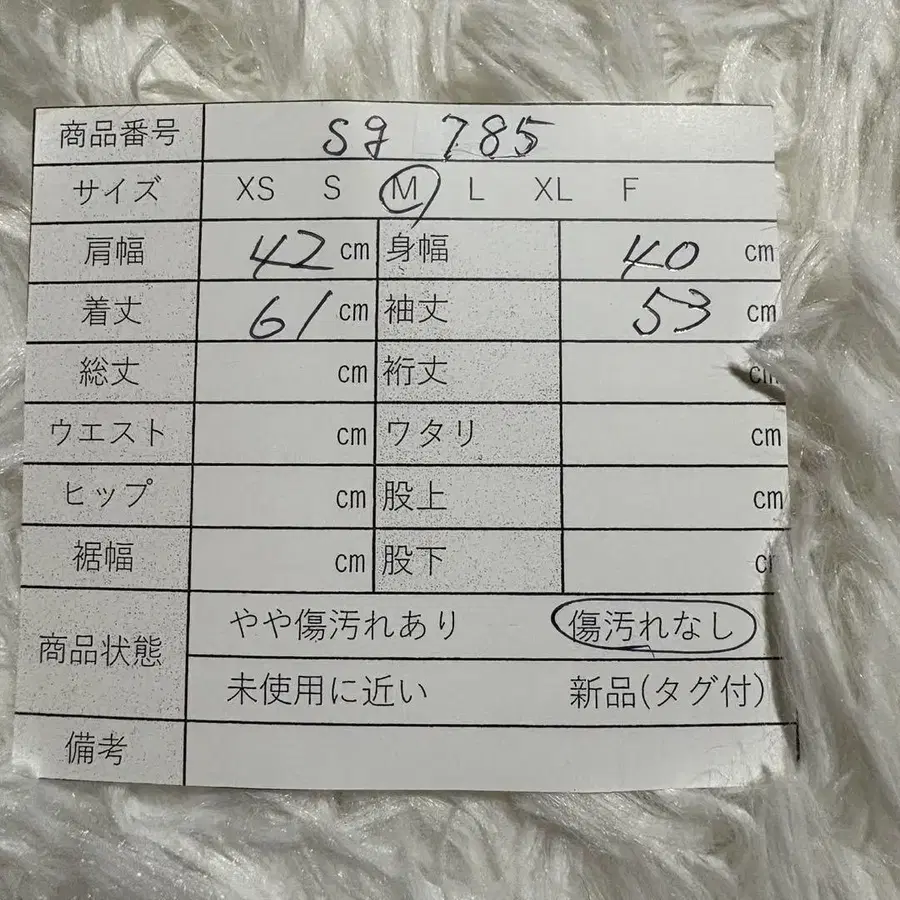 商品番号 sg 785
サイズ XS S M L XL F
肩幅 42 cm 身幅 40 cm
着丈 61 cm 袖丈 53 cm
総丈 cm 裄丈 cm
ウエスト cm ワタリ cm
ヒップ cm 股上 cm
裾幅 cm 股下 cm
商品状態 やや傷汚れあり 傷汚れなし
未使用に近い 新品(タグ付)
備考